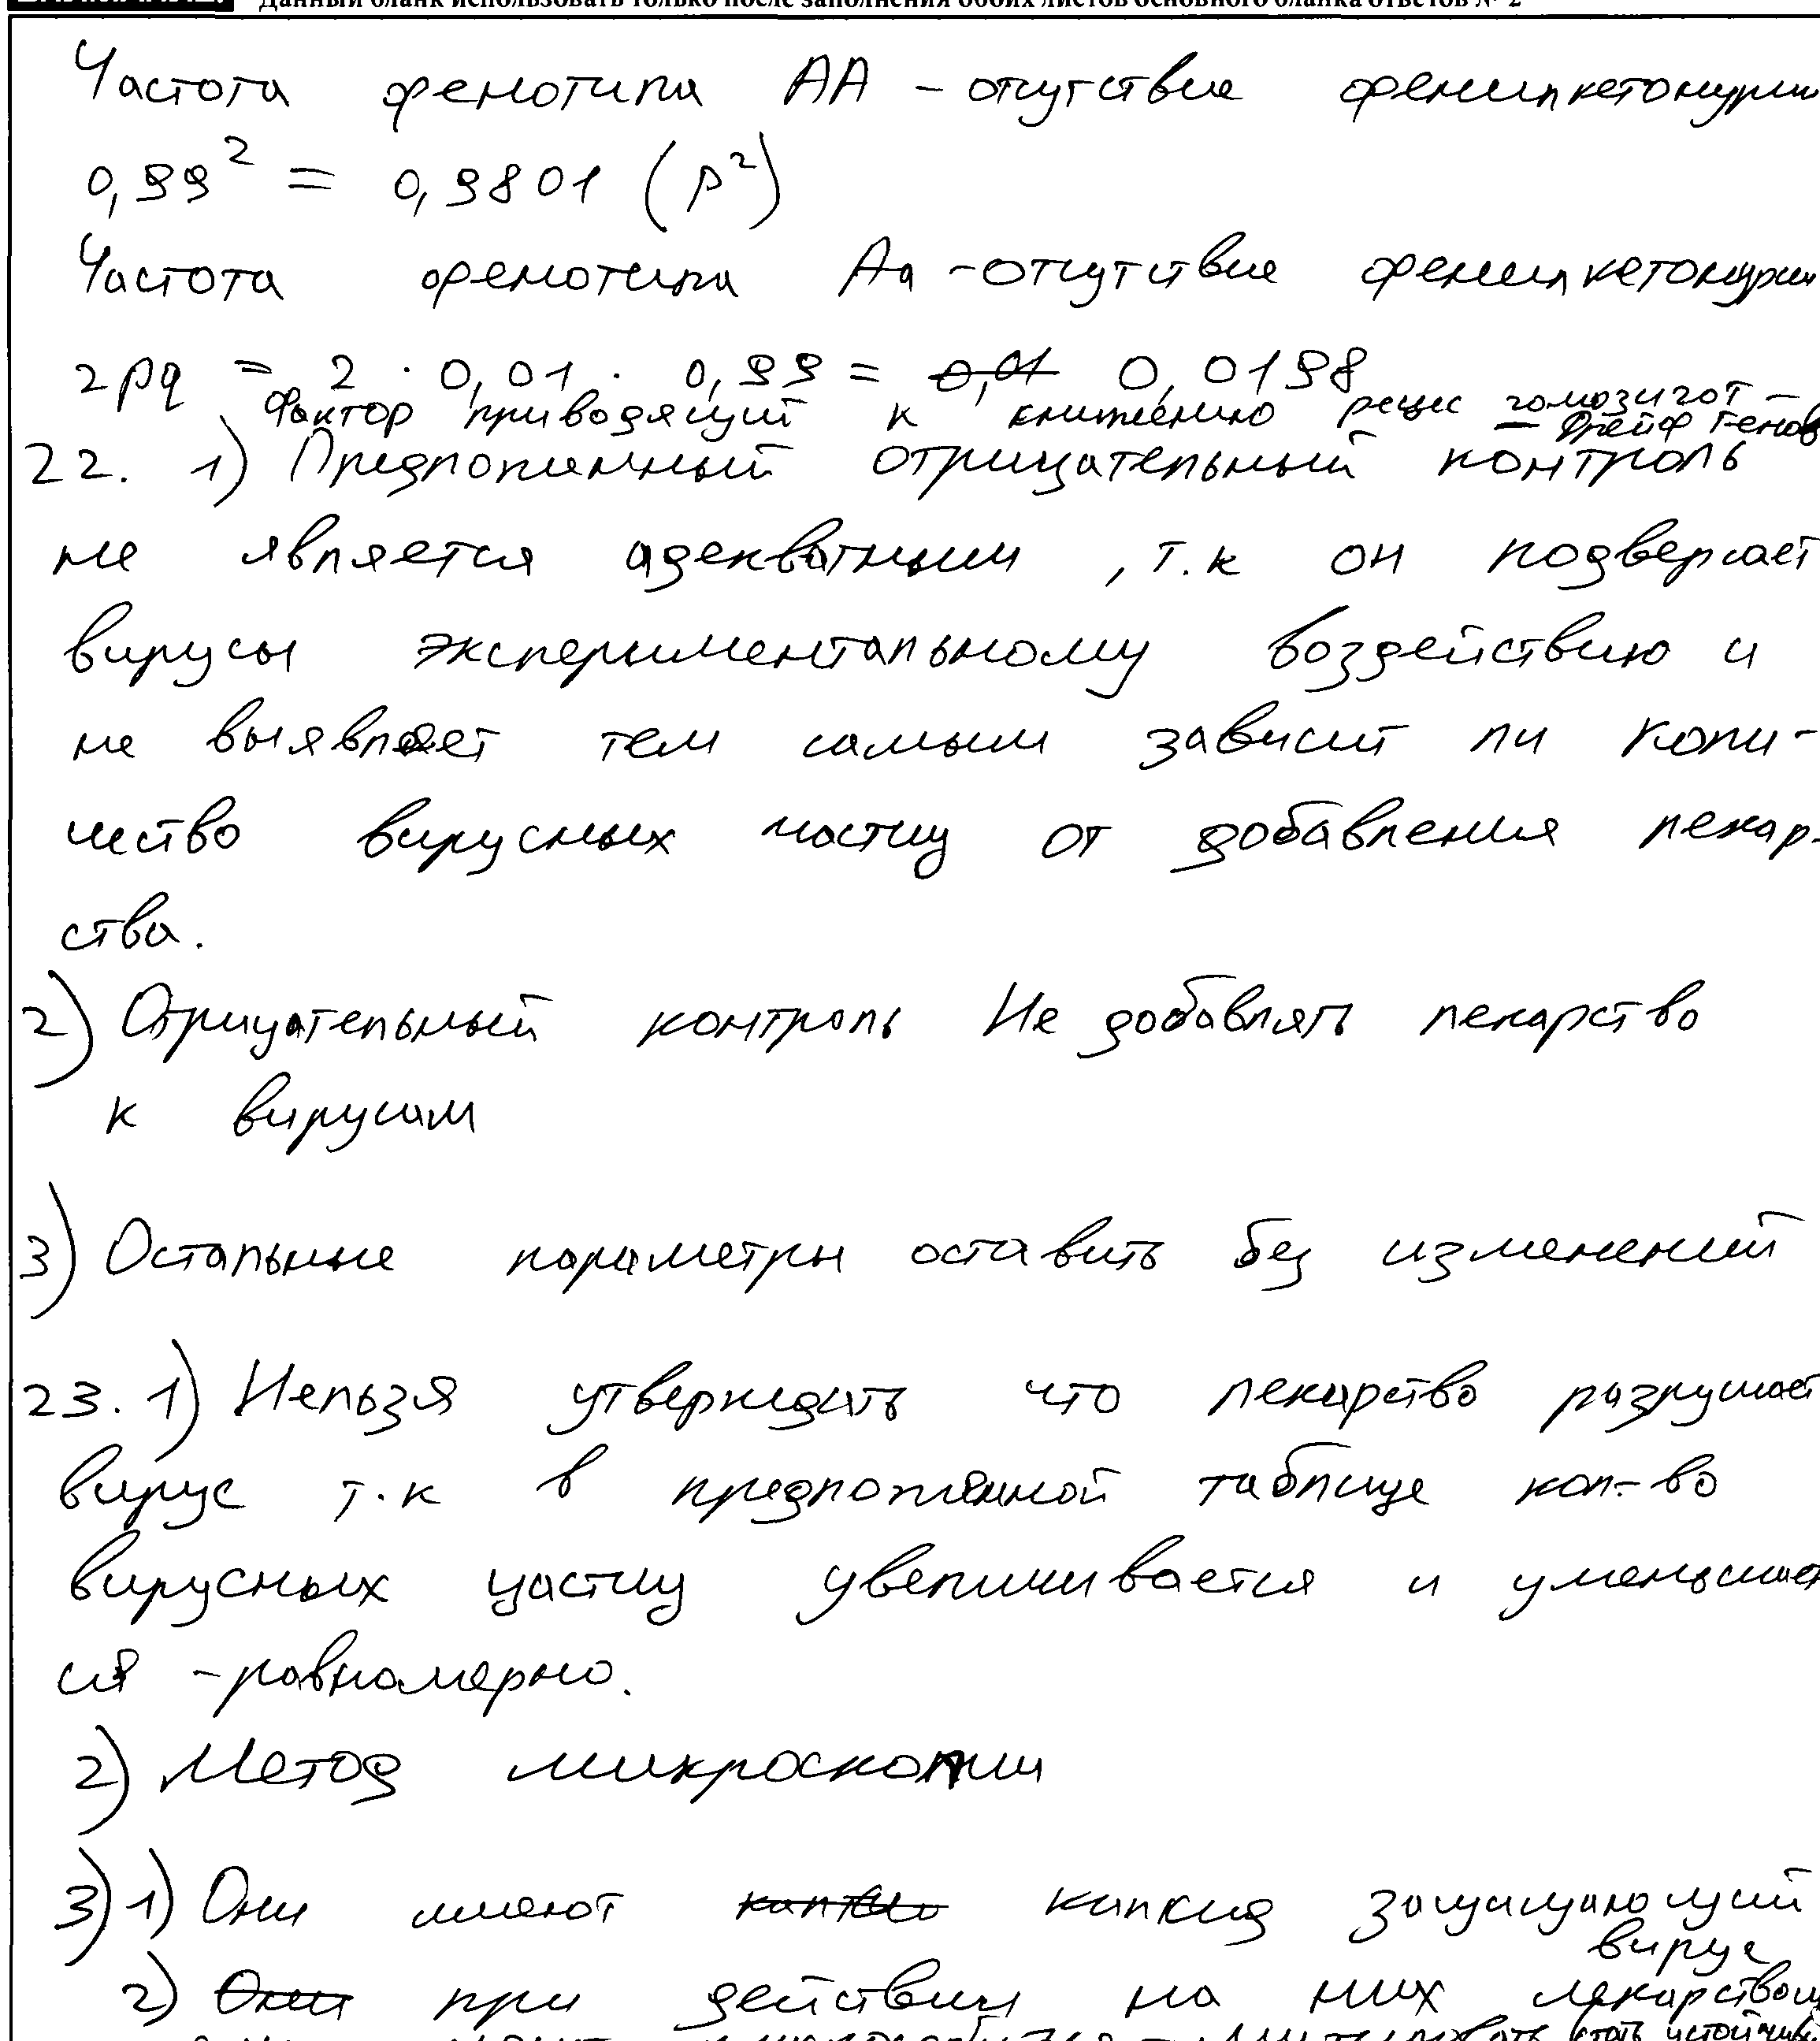 Данный бланк использовать только после заполнения обоих листов основного бланка ответов № 2
Частота фенотипа АА - отсутствие фенилкетонурии
0,99² = 0,9801 (p²)
Частота фенотипа Аа - отсутствие фенилкетонурии
2pq = 2 · 0,01 · 0,99 = 0,01 0,0198
Фактор приводящий к снижению рецес гомозигот -
- Дрейф Генов
22. 1) Предложенный отрицательный контроль
не является адекватным, т.к он подвергает
вирусы экспериментальному воздействию и
не выявляет тем самым зависит ли коли-
чество вирусных частиц от добавления лекар-
ства.
2) Отрицательный контроль Не добавлять лекарство
к вирусам
3) Остальные параметры оставить без изменений
23. 1) Нельзя утверждать что лекарство разрушает
вирус т.к в предложенной таблице кол-во
вирусных частиц увеличивается и уменьшает
ся - равномерно.
2) Метод микроскопии
3) 1) Они имеют капсид защищающий
вирус
2) Они при действии на них лекарством